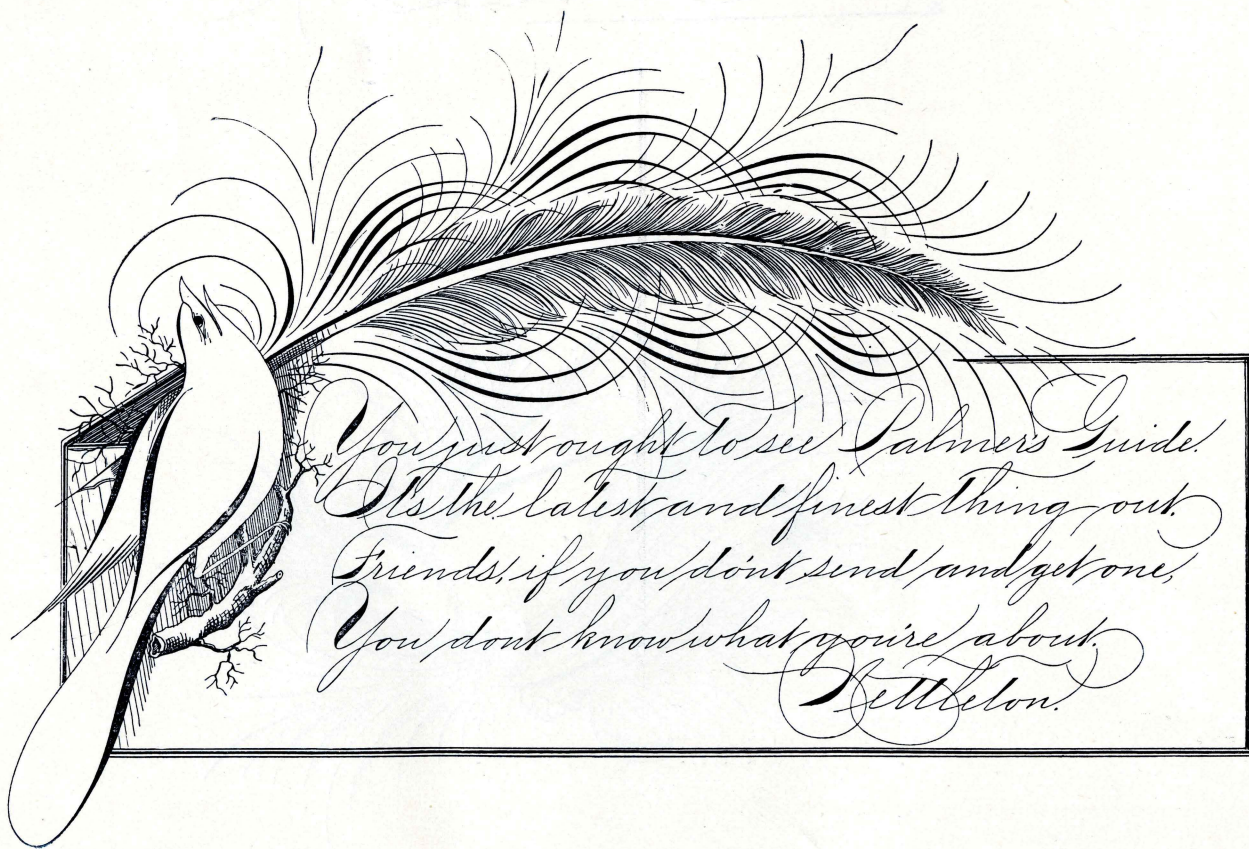 You just ought to see Palmer's Guide.
It's the latest and finest thing out.
Friends, if you do'nt send and get one,
You dont know what you're about.
Nettleton.